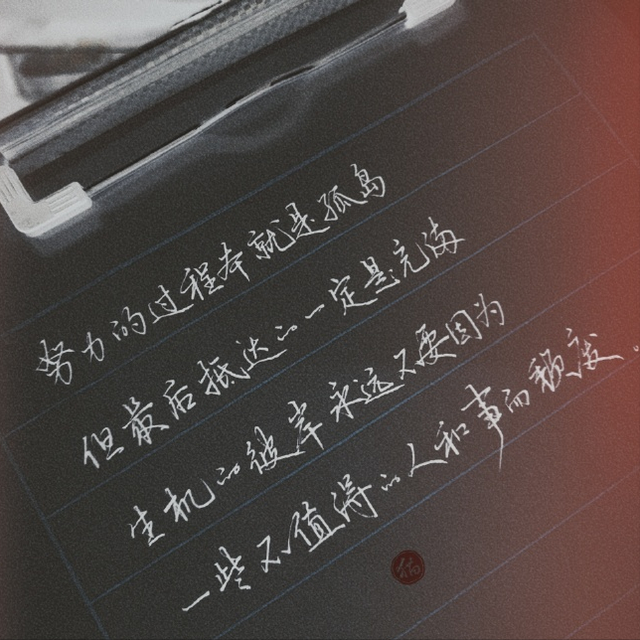 努力的过程本就是孤岛
但最后抵达的一定是充满
生机的彼岸永远不要因为
一些不值得的人和事而颓废。